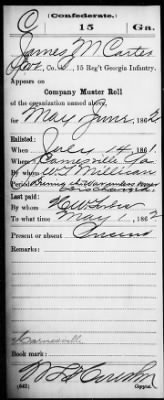 C (Confederate.)
15 Ga.
James M Carter
Pvt, Co. , 15 Reg't Georgia Infantry.
Appears on
Company Muster Roll
of the organization named above,
for May June, 1862.
Enlisted:
When July 14, 1861.
Where Carnesville Ga
By whom W T Millican
Period
Last paid:
By whom
To what time May 1, 1862
Present or absent Present
Remarks:
Carnesville
Book mark:
(642)